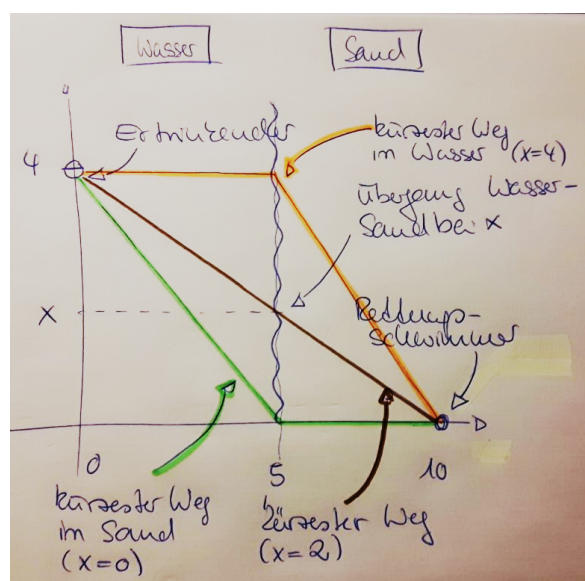 Wasser
Sand
Ertrinkender
kürzester Weg
in Wasser (x=4)
4
Übergang Wasser-
Sand bei x
x
Rettungs-
schwimmer
0
5
10
kürzester Weg
im Sand
(x=0)
kürzester Weg
(x=2)